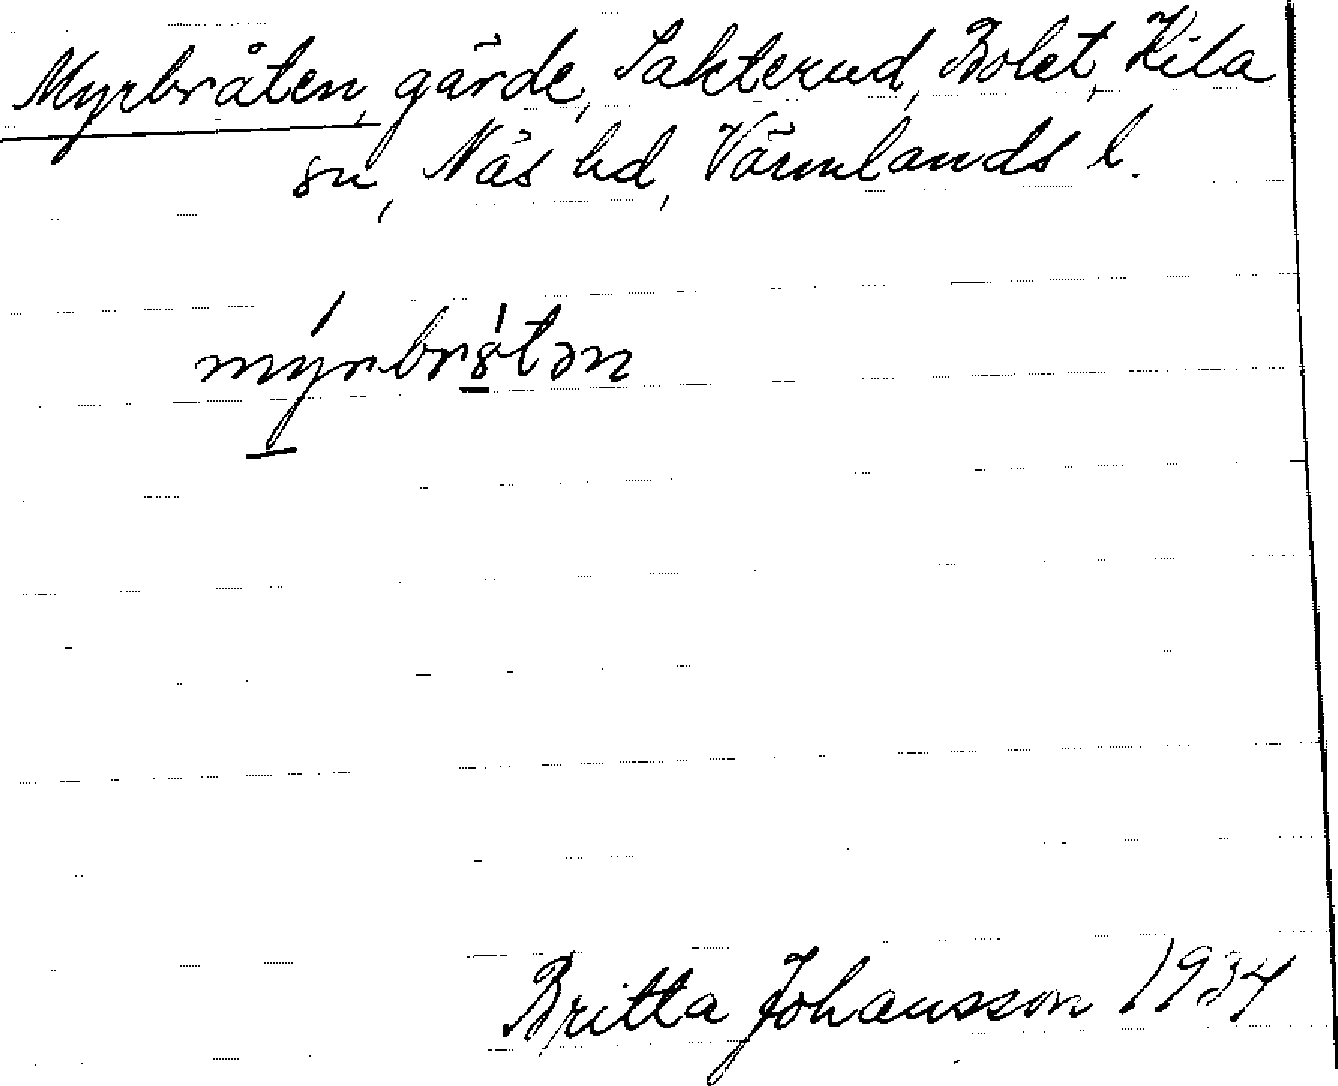 Myrbråten, gärde, Sakterud, Bolet, Kila
sn, Näs hd, Värmlands l.
mýrbrꞛ̀tən
Britta Johansson 1934